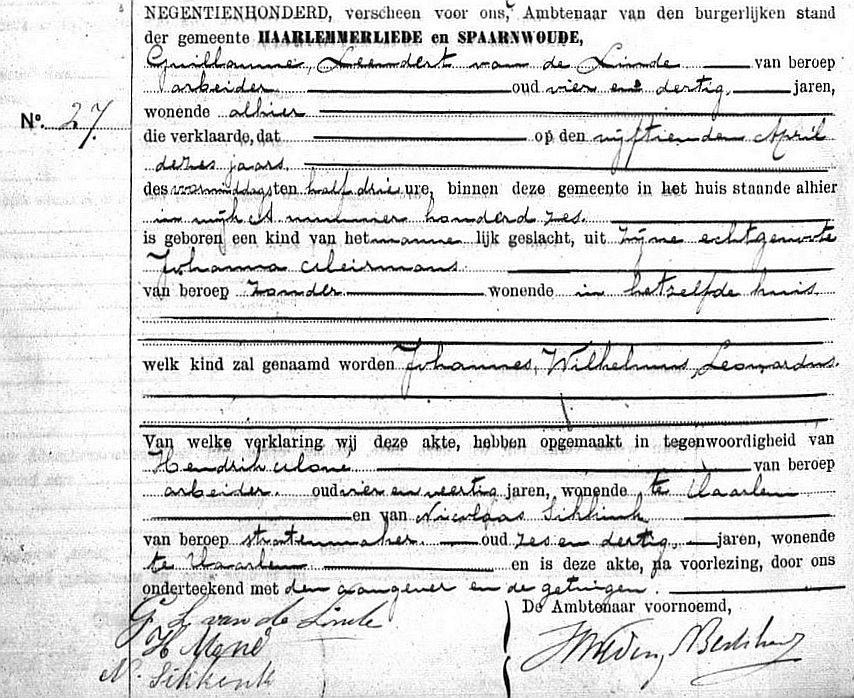 NEGENTIENHONDERD, verscheen voor ons, Ambtenaar van den burgerlijken stand
der gemeente HAARLEMMERLIEDE en SPAARNWOUDE,
Guillaume, Leendert van de Linde van beroep
arbeider oud vier en dertig jaren,
wonende alhier
No. 27.
die verklaarde, dat op den vijftienden April
dezes jaars.
des voormiddags ten half drie ure, binnen deze gemeente in het huis staande alhier
in wijk A nummer honderd zes.
is geboren een kind van het manne lijk geslacht, uit zijne echtgenoote
Johanna Meirmans
van beroep zonder wonende in hetzelfde huis
welk kind zal genaamd worden Johannes, Wilhelmus, Leonardus.
Van welke verklaring wij deze akte, hebben opgemaakt in tegenwoordigheid van
Hendrik Moné van beroep
arbeider. oud vier en veertig jaren, wonende te Haarlem
en van Nicolaas Sikkink
van beroep stratenmaker. oud zes en dertig, jaren, wonende
te Haarlem en is deze akte, na voorlezing, door ons
onderteekend met den aangever en de getuigen.
G L van de Linde
De Ambtenaar voornoemd,
H Moné
N. Sikkenk